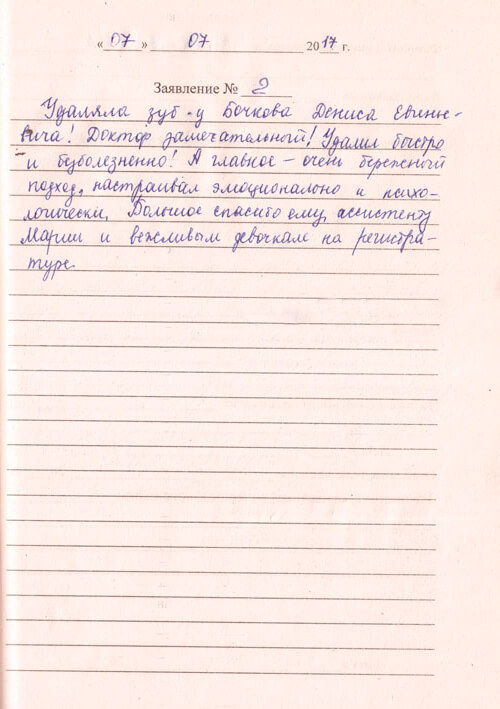 « 07 » 07 2017 г.
Заявление № 2
Удаляла зуб у Бочкова Дениса Евгенье-
вича! Доктор замечательный! Удалил быстро
и безболезненно! А главное – очень бережный
подход, настраивал эмоционально и психо-
логически. Большое спасибо ему, ассистенту
Марии и вежливым девочкам на регистра-
туре.